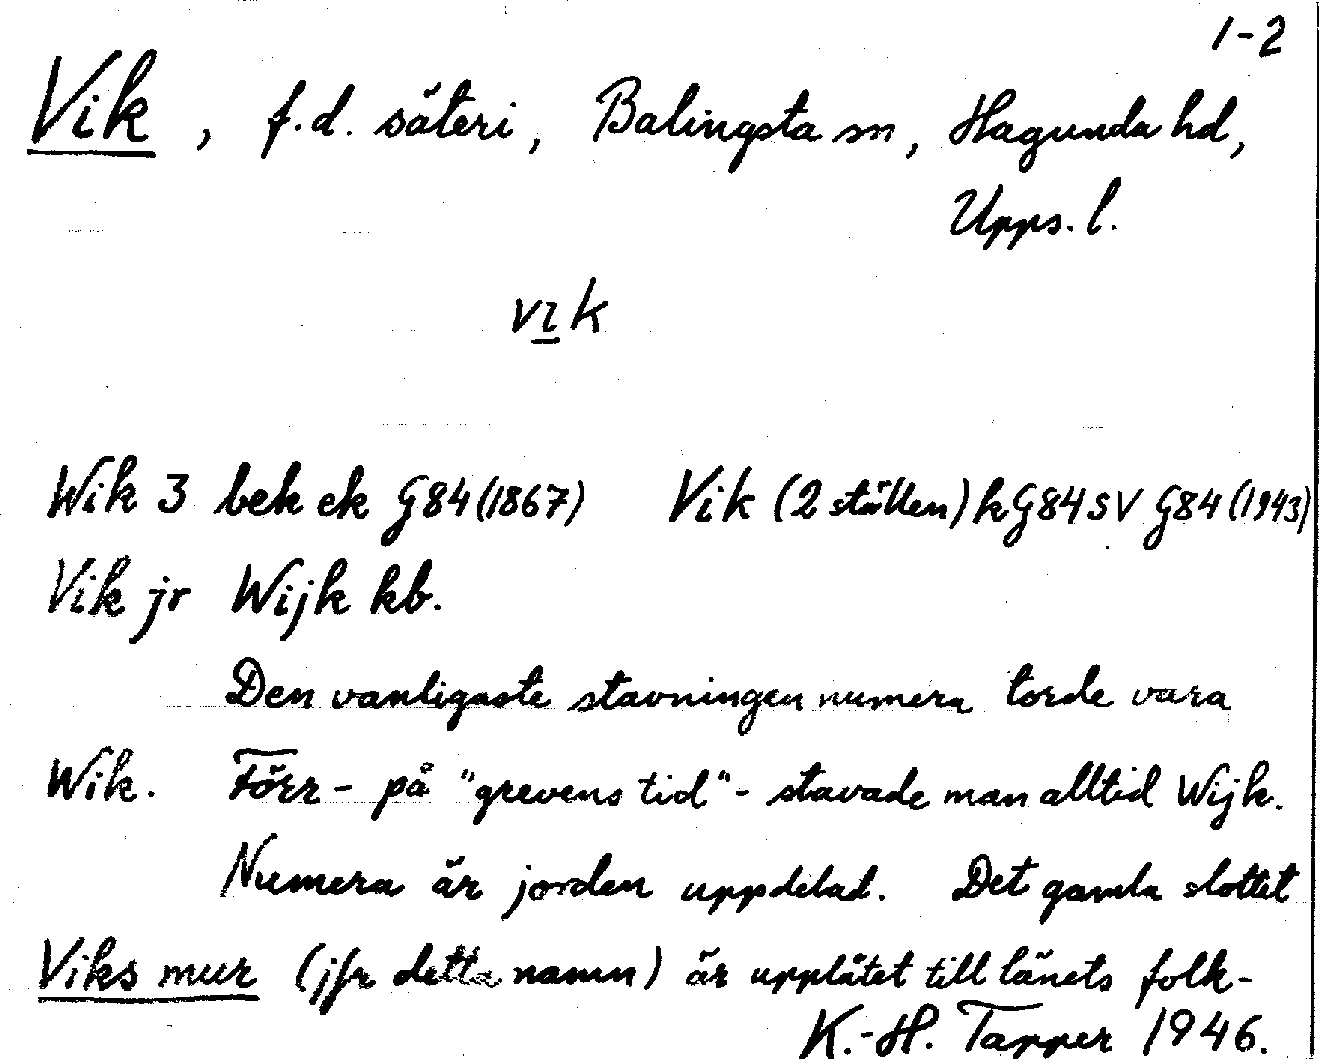 1-2
Vik, f.d. säteri, Balingsta sn, Hagunda hd,
Upps. l.
vik
Wik 3 bek ek G84(1867) Vik (2 ställen) k G84SV G84(1943)
Vik jr Wijk kb.
Den vanligaste stavningen numera torde vara
Wik. Förr - på "grevens tid" - stavade man alltid Wijk.
Numera är jorden uppdelad. Det gamla slottet
Viks mur (jfr detta namn) är upplåtet till länets folk-
K.-H. Tapper 1946.